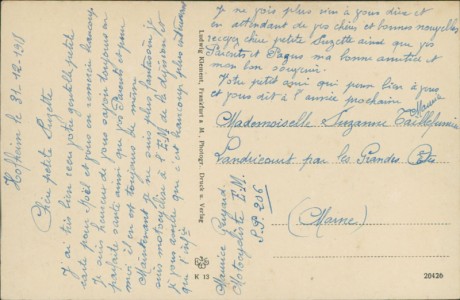 Hofheim le 31-12-1918
Chère petite Suzette
J'ai très bien reçu votre gentille petite
carte pour Noël et vous en remercie beaucoup
je suis heureux de vous savoir toujours en
parfaite santé ainsi que vos Parents et pour
moi il en est toujours de même
Maintenant je ne suis plus fantassin je
suis motocycliste à l'E.M. de la division et
je vous assure que c'est beaucoup plus intéressant
que l'inf.
Je ne vois plus rien à vous dire et
en attendant de vos chères et bonnes nouvelles
recevez chère petite Suzette ainsi que vos
Parents et ma bonne amitié et
mon bon souvenir.
Votre petit ami qui pense bien à vous
et vous dit à l'année prochaine
Maurice
Mademoiselle Suzanne
Landricourt par les Grandes Côtes
(Marne)
Maurice
Motocycliste E.M.
S.P. 206
Ludwig Klement, Frankfurt a M. Photogr. Druck u. Verlag
K 13
20426